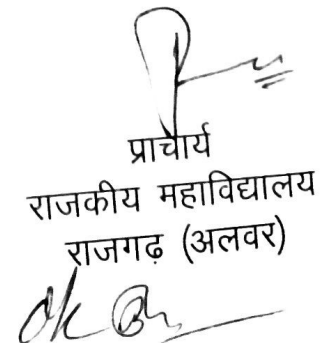 प्राचार्य
राजकीय महाविद्यालय
राजगढ़ (अलवर)